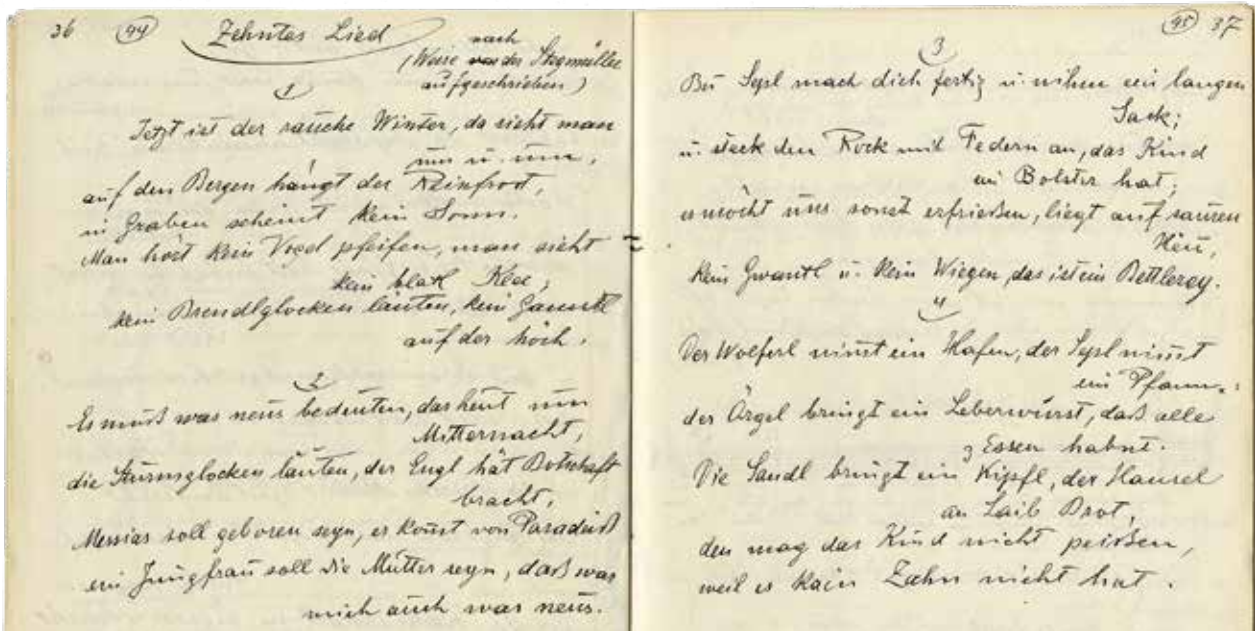 36 (44) Zehntes Lied
nach
(Weise von der Stegmüller
aufgeschrieben)
1
Jetzt ist der rauche Winter, da sieht man
um u. um,
auf den Bergen hängt der Reinfrost,
in Graben scheint kein Sonn.
Man hört kein Vogel pfeifen, man sieht
kein blatl Klee,
kein Brendlglocken läuten, kein Gamstl
auf der höch.
2
Es muß was neus bedeuten, das heut um
Mitternacht,
die Sturmglocken läuten, der Engl hät Botschaft
bracht,
Messias soll geboren seyn, er komt von Paradeiß
ein Jungfrau soll die Mutter seyn, daß war
mich auch was neus.
(45) 37
3
Bu Sepl mach dich fertig u. nihm ein langen
Sack;
u. steck den Rock mit Federn an, das Kind
an Bolster hat;
es möcht uns sonst erfrießen, liegt auf sauren
Heu,
kein Gwantl u. kein Wiegen, das ist ein Bettlerey.
4
Der Wolferl nimt ein Hafen, der Sepl nimt
ein Pfann.
der Örgel bringt ein Leberwurst, daß alle
z Essen habnt.
Die Sandl bringt ein Kipfl, der Hansel
an Laib Brot,
den mag das Kind nicht peißen,
weil es kain Zahn nicht hat.